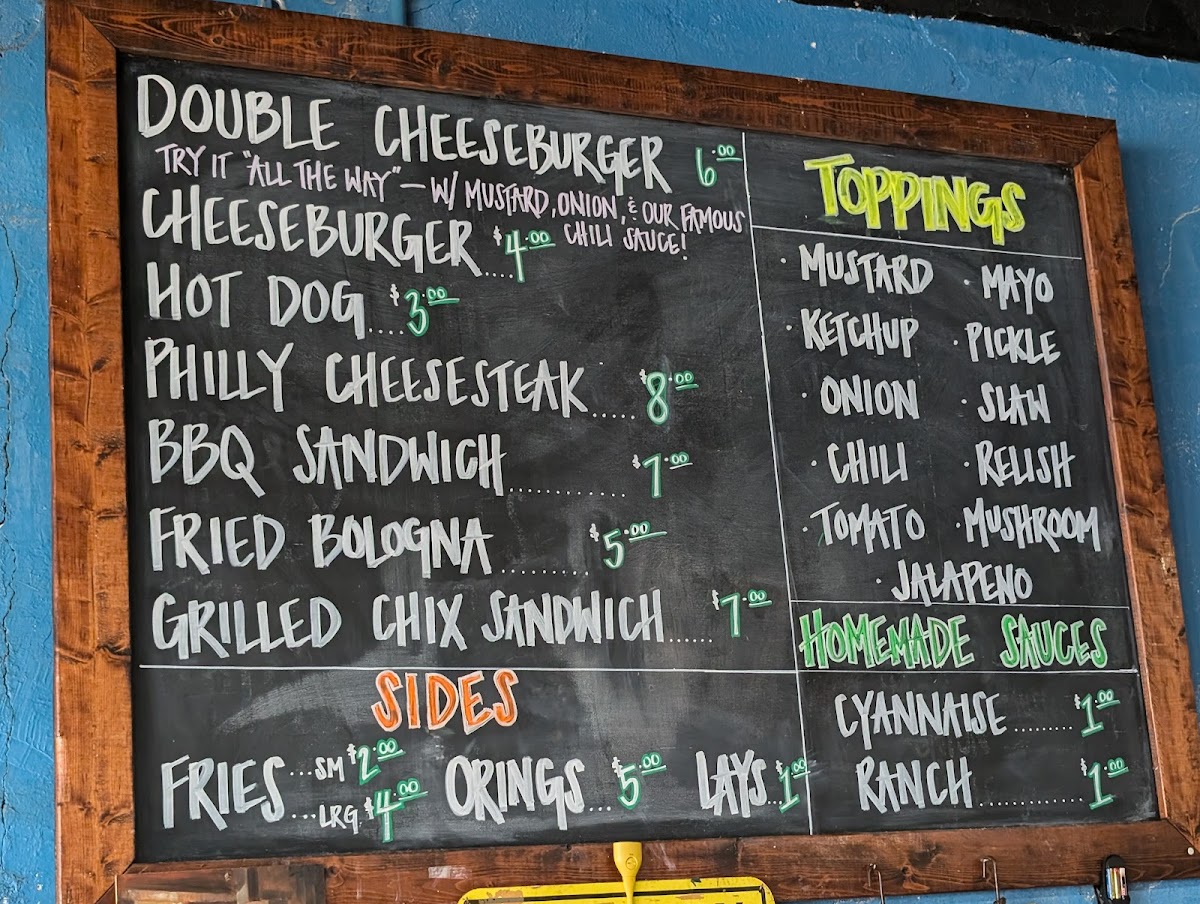 DOUBLE CHEESEBURGER 6.00
TRY IT "ALL THE WAY" — W/ MUSTARD, ONION, & OUR FAMOUS
CHILI SAUCE!
CHEESEBURGER $4.00
HOT DOG.... $3.00
PHILLY CHEESESTEAK..... $8.00
BBQ SANDWICH............ $7.00
FRIED BOLOGNA.......... $5.00
GRILLED CHIX SANDWICH...... $7.00
SIDES
FRIES...SM $2.00
...LRG $4.00
ORINGS... $5.00
LAYS... $1.00
TOPPINGS
· MUSTARD · MAYO
· KETCHUP · PICKLE
· ONION · SLAW
· CHILI · RELISH
· TOMATO · MUSHROOM
· JALAPENO
HOMEMADE SAUCES
CYANNAISE........ $1.00
RANCH............ $1.00